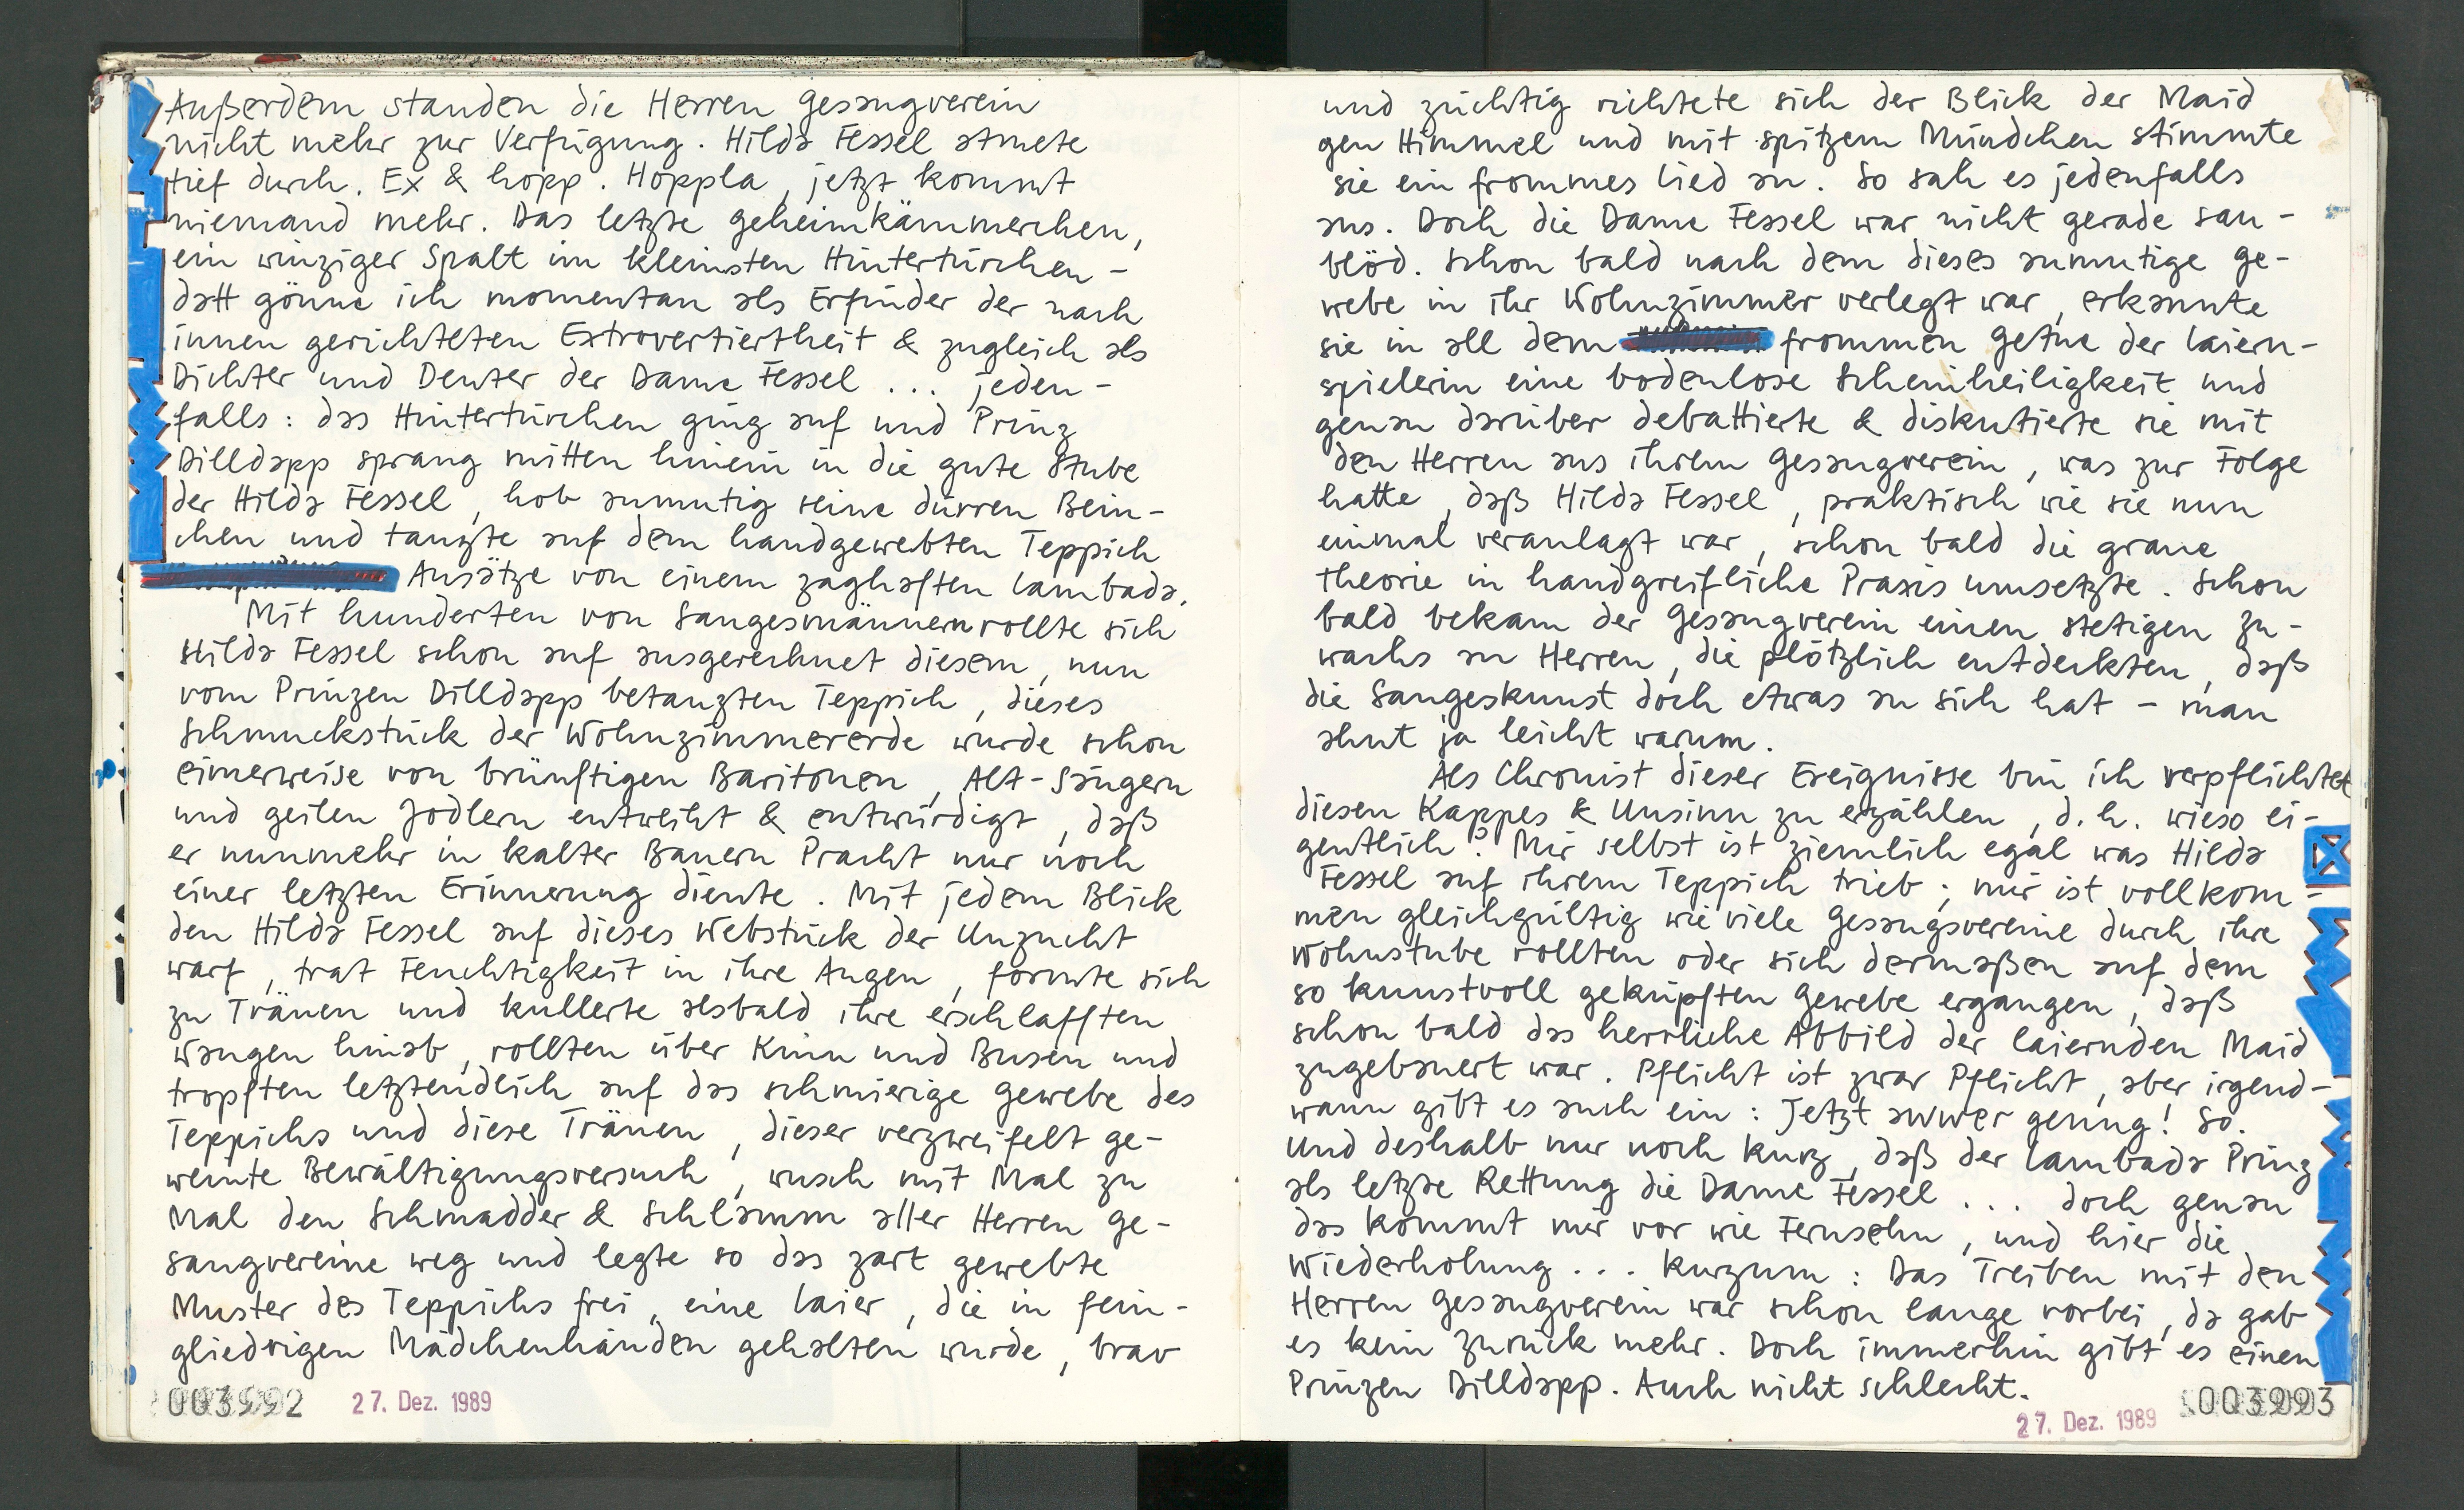 Außerdem standen die Herren Gesangverein
nicht mehr zur Verfügung. Hilda Fessel atmete
tief durch. Ex & hopp. Hoppla, jetzt kommt
niemand mehr. Das letzte Geheimkämmerchen,
ein winziger Spalt im kleinsten Hintertürchen -
datt gönne ich momentan als Erfinder der nach
innen gerichteten Extrovertiertheit & zugleich als
Dichter und Deuter der Dame Fessel ... jeden-
falls: das Hintertürchen ging auf und Prinz
Dilldapp sprang mitten hinein in die gute Stube
der Hilda Fessel, hob anmutig seine dürren Bein-
chen und tanzte auf dem handgewebten Teppich
Ansätze von einem zaghaften Lambada.
Mit hunderten von Sangesmännern rollte sich
Hilda Fessel schon auf ausgerechnet diesem, nun
vom Prinzen Dilldapp betanzten Teppich, dieses
Schmuckstück der Wohnzimmererde wurde schon
eimerweise von brünftigen Baritonen, Alt-Sängern
und geilen Jodlern entweiht & entwürdigt, daß
er nunmehr in kalter Bauern Pracht nur noch
einer letzten Erinnerung diente. Mit jedem Blick
den Hilda Fessel auf dieses Webstück der Unzucht
warf, trat Feuchtigkeit in ihre Augen, formte sich
zu Tränen und kullerte alsbald ihre erschlafften
Wangen hinab, rollten über Kinn und Busen und
tropften letztendlich auf das schmierige Gewebe des
Teppichs und diese Tränen, dieser verzweifelt ge-
weinte Bewältigungsversuch, wusch mit Mal zu
Mal den Schmadder & Schlamm aller Herren Ge-
sangvereine weg und legte so das zart gewebte
Muster des Teppichs frei, eine Laier, die in fein-
gliedrigen Mädchenhänden gehalten wurde, brav
003992 27. Dez. 1989
und züchtig richtete sich der Blick der Maid
gen Himmel und mit spitzem Mündchen stimmte
sie ein frommes Lied an. So sah es jedenfalls
aus. Doch die Dame Fessel war nicht gerade sau-
blöd. Schon bald nach dem dieses anmutige Ge-
webe in ihr Wohnzimmer verlegt war, erkannte
sie in all dem frommen Getue der Laiern-
spielerin eine bodenlose Scheinheiligkeit und
genau darüber debattierte & diskutierte sie mit
den Herren aus ihrem Gesangverein, was zur Folge
hatte, daß Hilda Fessel, praktisch wie sie nun
einmal veranlagt war, schon bald die graue
Theorie in handgreifliche Praxis umsetzte. Schon
bald bekam der Gesangverein einen stetigen Zu-
wachs an Herren, die plötzlich entdeckten, daß
die Sangeskunst doch etwas an sich hat - man
ahnt ja leicht warum.
Als Chronist dieser Ereignisse bin ich verpflichtet
diesen Kappes & Unsinn zu erzählen, d.h. wieso ei-
gentlich? Mir selbst ist ziemlich egal was Hilda
Fessel auf ihrem Teppich trieb; mir ist vollkom-
men gleichgültig wie viele Gesangsvereine durch ihre
Wohnstube rollten oder sich dermaßen auf dem
so kunstvoll geknüpften Gewebe ergangen, daß
schon bald das herrliche Abbild der laiernden Maid
zugebauert war. Pflicht ist zwar Pflicht, aber irgend-
wann gibt es auch ein: Jetzt awwer genug! So.
Und deshalb nur noch kurz, daß der Lambada Prinz
als letzte Rettung die Dame Fessel ... doch genau
das kommt mir vor wie Fernsehn, und hier die
Wiederholung ... Kurzum: Das Treiben mit den
Herren Gesangverein war schon lange vorbei, da gab
es kein Zurück mehr. Doch immerhin gibt es einen
Prinzen Dilldapp. Auch nicht schlecht.
27. Dez. 1989 003993